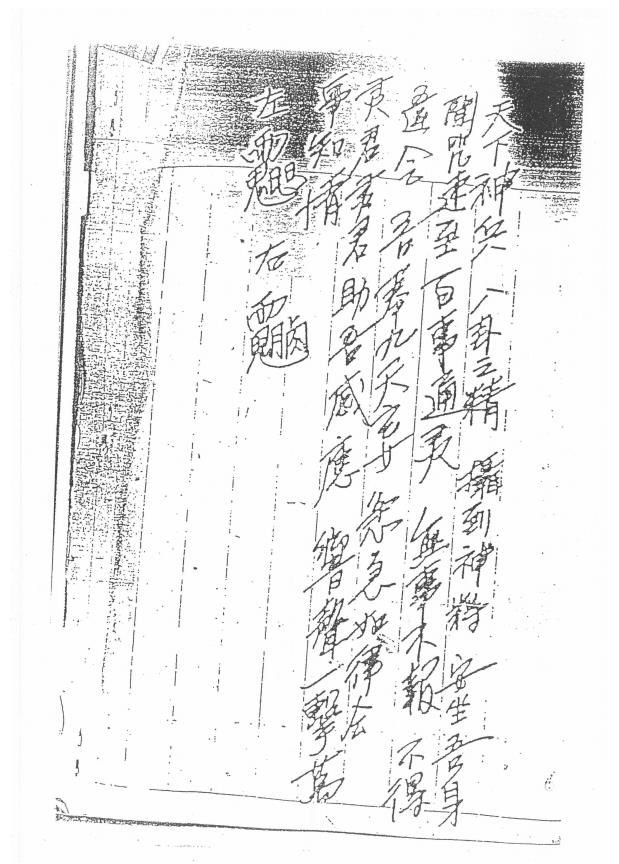 天下神兵 八卦之精 攝到神將 安坐吾身
聞咒速至 百事通灵 無事不報 不得
違令 吾奉九天玄女 急急如律令
灵君灵君 助吾感應 響聲一擊 萬
事知情
左 右